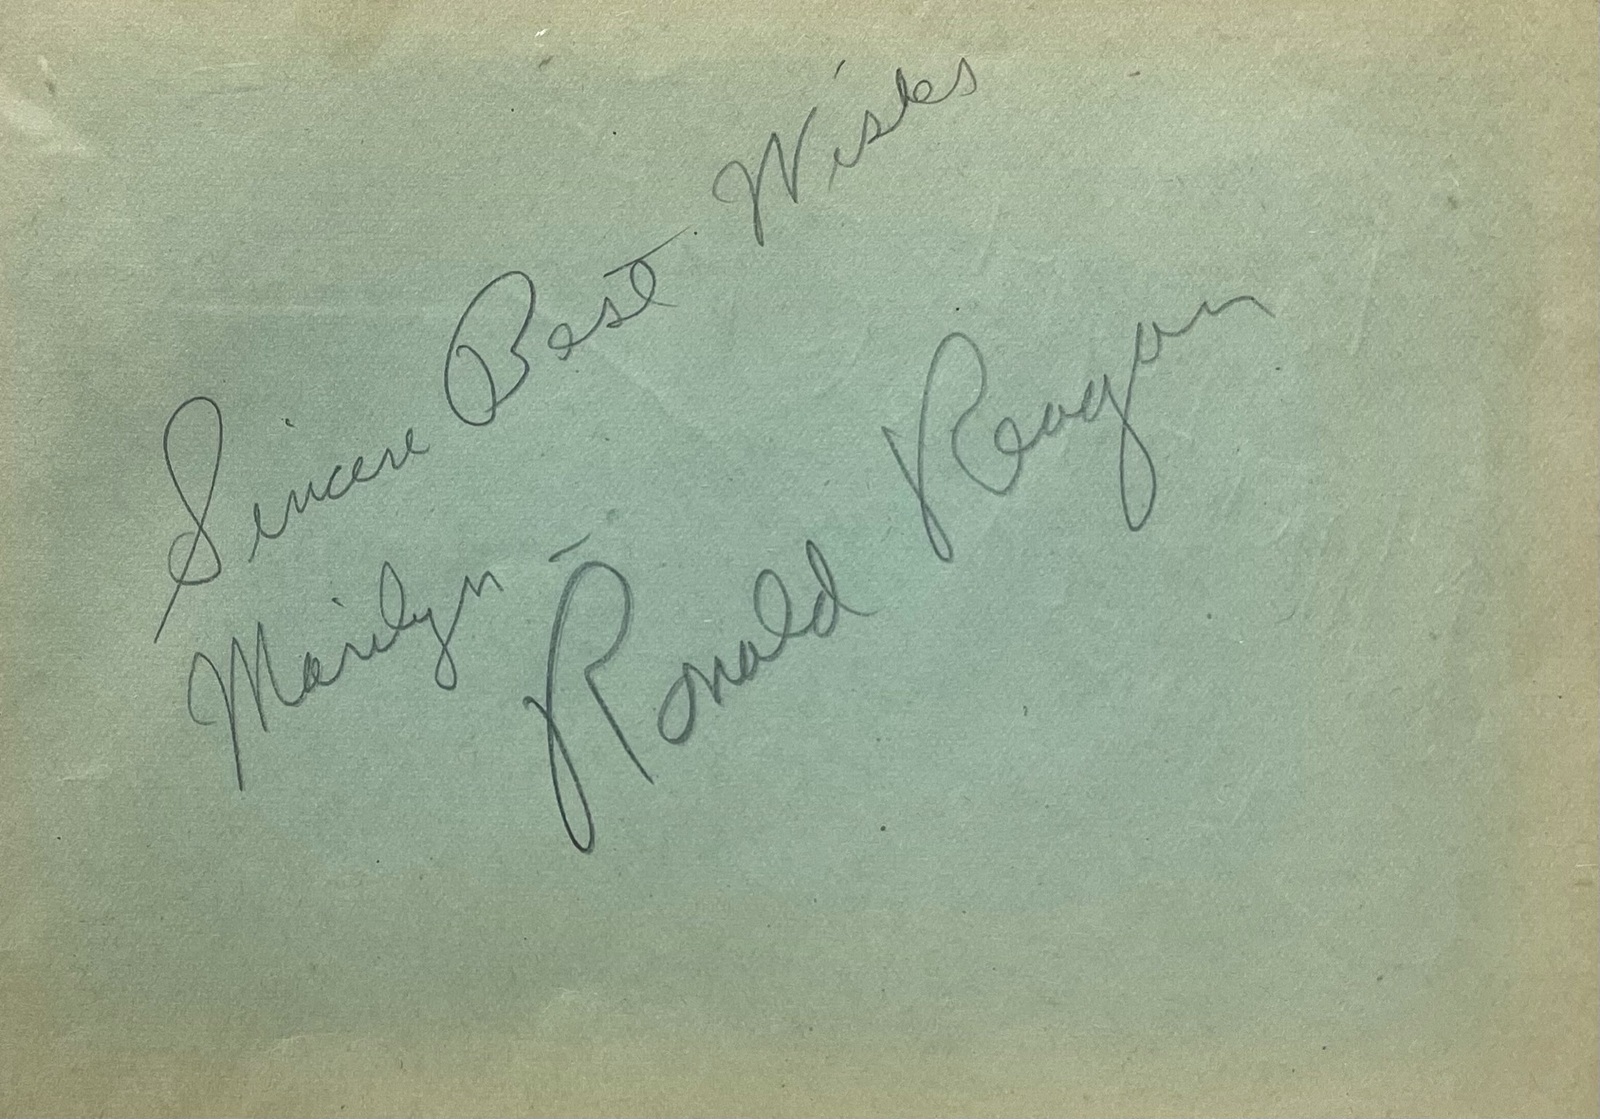 Sincere Best Wishes
Marilyn –
Ronald Reagan